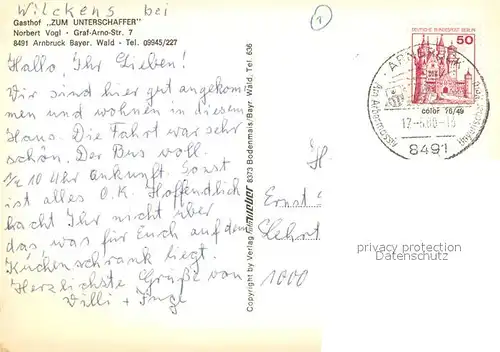 Wilckens bei
Gasthof „ZUM UNTERSCHAFFER"
Norbert Vogl · Graf-Arno-Str. 7
8491 Arnbruck Bayer. Wald - Tel. 09945/227
Hallo, Ihr Lieben!
Wir sind hier gut angekom
men und wohnen in diesem
Haus. Die Fahrt war sehr
schön. Der Bus voll.
10 Uhr Ankunft. Sonst
ist alles O.K. Hoffendlich
lacht Ihr nicht über
das, was für Euch auf dem
Küchenschrank liegt.
Herzlichste Grüße von
Willi + Inge
Copyright by Verlag 8373 Bodenmais/Bayr. Wald, Tel. 636
1
DEUTSCHE BUNDESPOST BERLIN
50
ARNBRUCK
color 76/49
8491
H
Ernst
1000
privacy protection
Datenschutz